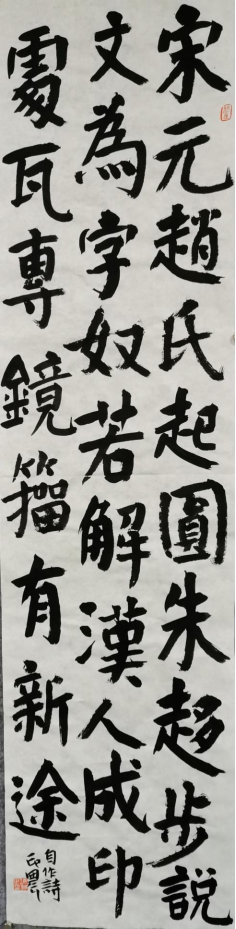 宋元趙氏起圓朱趍步說
文為字奴若解漢人成印
處瓦專鏡籀有新途
自作詩